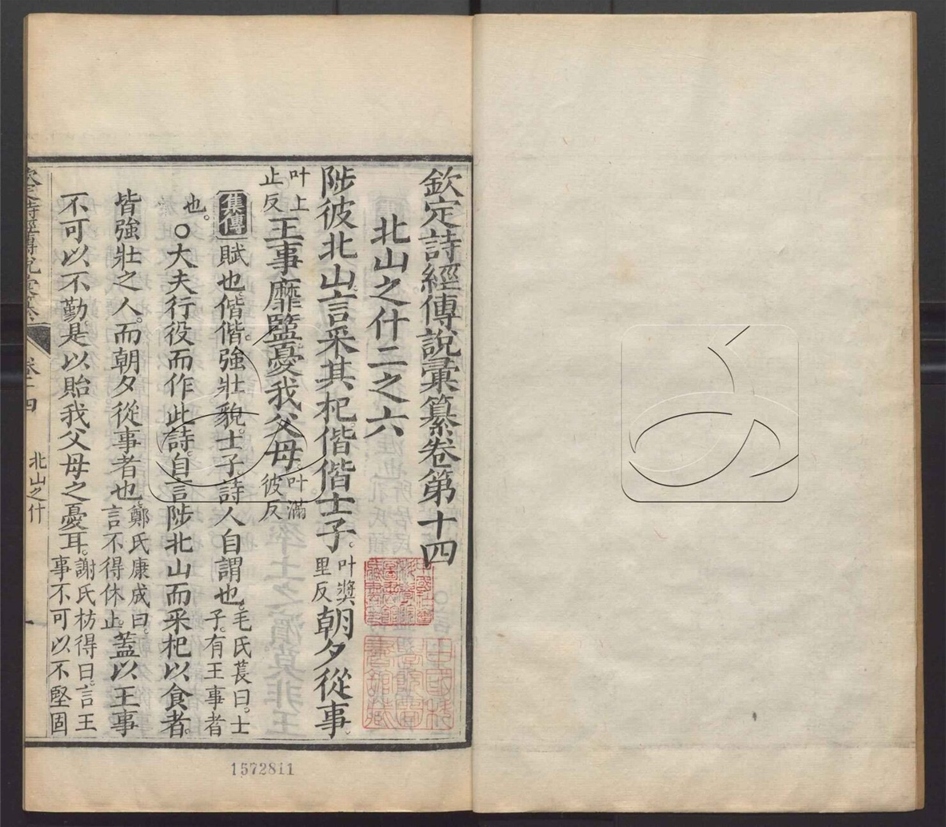 欽定詩經傳說彙纂卷第十四
北山之什二之六
陟彼北山言采其杞偕偕士子。叶奬里反朝夕從事。
叶上止反王事靡盬憂我父母。叶滿彼反
集傳賦也偕偕。強壯貌。士子詩人自謂也。毛氏萇曰。士子。有王事者
也。○大夫行役而作此詩。自言陟北山而采杞以食者。
皆強壯之人。而朝夕從事者也。鄭氏康成曰。言不得休止。蓋以王事
不可以不勤。是以貽我父母之憂耳。謝氏枋得曰。言王事不可以不堅固
卷十四
北山之什
一
1572811